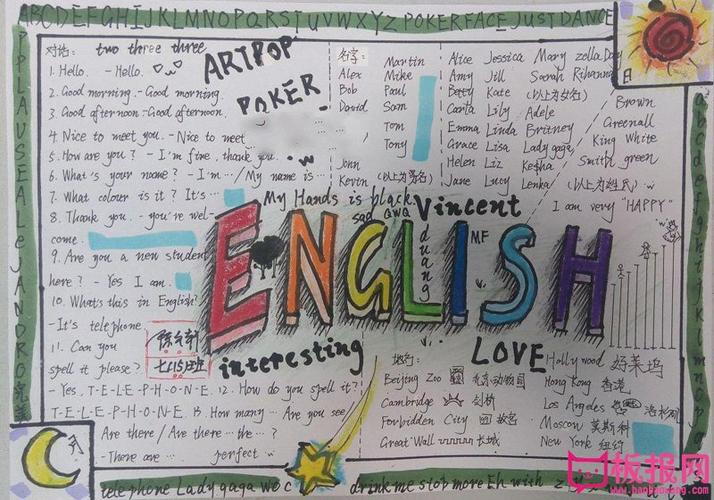 ABCDEFGHIJKLMNOPQRSTUVWXYZ POKERFACE JUST DANCE
APPLAUSE ALEJANDRO
对话: two three three
1. Hello. - Hello.
2. Good morning. - Good morning.
3. Good afternoon. - Good afternoon.
4. Nice to meet you. - Nice to meet
5. How are you? - I'm fine, thank you.
6. What's your name? - I'm … / My name is …
7. What colour is it? It's …
8. Thank you. - you're wel-
come.
9. Are you a new student
here? - Yes I am.
10. What's this in English?
- It's telephone
11. Can you
spell it please?
Yes, T-E-L-E-P-H-O-N-E. 12. How do you spell it?
T-E-L-E-P-H-O-N-E. 13. How many … Are you see
Are there / Are there … the … ?
- There are … perfect
ARTPOP
POKER
名字:
Alex
Bob
David
John
Kevin
Martin
Mike
Paul
Sam
Tom
Tony
(以上为男名)
Alice Jessica Mary zella Day
Amy Jill Sarah Rihanna
Betty Kate (以上为女名)
Carta Lily Adele
Emma Linda Britney
Grace Lisa Lady gaga
Helen Liz Kesha
Jane Lucy Lenka (以上为姓氏)
日
Brown
Greenall
King White
Smith green
I am very "HAPPY"
My Hands is black
sad QWQ
Vincent
duang
MF
ENGLISH
七(15)班
interesting
LOVE
地方:
Beijing Zoo 北京动物园
Cambridge 剑桥
Forbidden City 故宫
Great Wall 长城
Hollywood 好莱坞
Hong Kong 香港
Los Angeles 洛杉矶
Moscow 莫斯科
New York 纽约
月
telephone Lady gaga woc drink me stop more Eh with
板报网
www.banbaowang.com